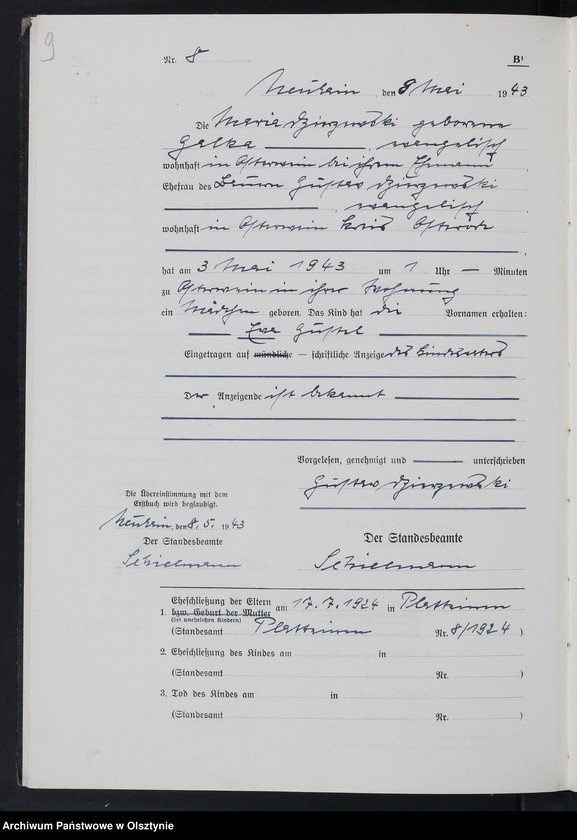 9
Nr. 8
B¹
den 8 Mai 1943
Die Maria Dzierzewski geborene
Galka, evangelisch
wohnhaft in Osterwein bei ihrem Ehemann
Ehefrau des Bauern Gustav Dzierzewski
, evangelisch
wohnhaft in Osterwein Kreis Osterode
hat am 3 Mai 1943 um 1 Uhr — Minuten
zu Osterwein in ihrer Wohnung
ein Mädchen geboren. Das Kind hat die Vornamen erhalten:
Eva Gustel
Eingetragen auf mündliche — schriftliche Anzeige des Kindesvaters
Der Anzeigende ist bekannt
Vorgelesen, genehmigt und — unterschrieben
Gustav Dzierzewski
Die Übereinstimmung mit dem
Erstbuch wird beglaubigt.
den 8. 5. 1943
Der Standesbeamte
Der Standesbeamte
Eheschließung der Eltern
1. bzw. Geburt der Mutter am 17. 7. 1924 in
(bei unehelichen Kindern)
(Standesamt Nr. 8/1924 ).
2. Eheschließung des Kindes am in
(Standesamt Nr. )
3. Tod des Kindes am in
(Standesamt Nr. )
Archiwum Państwowe w Olsztynie